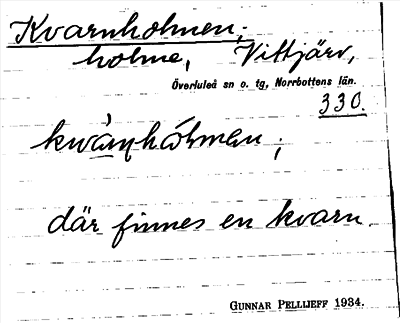 Kvarnholmen,
holme, Vittjärv,
Överluleå sn o. tg, Norrbottens län.
330.
kwà̀ṇhólmen ;
där finnes en kvarn.
GUNNAR PELLIJEFF 1934.